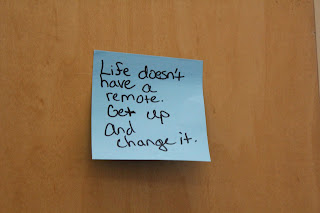 Life doesn't
have a
remote.
Get up
and
change it.